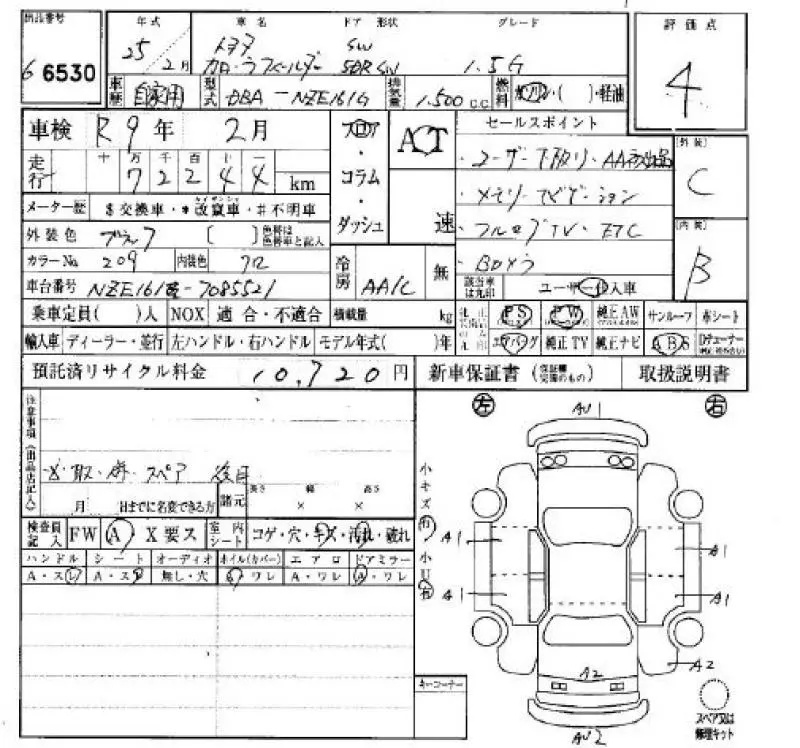 出品番号 年式 車名 ドア形状 グレード 評価点
6 6530 25/2月 トヨタ カローラフィールダー SW 5DR SW 1.5G 4
車歴 自家用 型式 DBA-NZE161G 排気量 1.500 c.c. 燃料 ガソリン・( )・軽油
車検 R9年 2月 フロア・コラム・ダッシュ AT 速 セールスポイント
走行 十万千百十一 72244 km
・ユーザー下取り・AA初出品
・メモリーナビゲーション
・フルセグTV・ETC
・BDカメラ
外装 C
内装 B
メーター歴 $交換車・*改竄車・#不明車
カイザンシャ
外装色 ブラック ( ) 色替は色替車と記入
カラーNo. 209 内装色 クロ
車台番号 NZE161-7085521
冷房 AA/C 無
該当車は丸印 ユーザー・入車
乗車定員( )人 NOX 適合・不適合 積載量 kg
PS PW 純正AW サンルーフ 革シート
輸入車 ディーラー・並行 左ハンドル・右ハンドル モデル年式( )年
エアバッグ 純正TV 純正ナビ ABS
預託済リサイクル料金 10,720円 新車保証書 (保証書 交換のもの) 取扱説明書
注意事項(出品店記入)
スペア 後日
月 日までに名変できる方 諸元 長さ × 幅 × 高さ
検査員記入 FW A X要ス 室内シート コゲ・穴・キズ・汚れ・破れ
ハンドル シート オーディオ ホイル(カバー) エアロ ドアミラー
A・スレ A・スレ 無し・穴 A・ワレ A・ワレ A・ワレ
左 右
小キズ有 小U有
AU1
A1 A1
A1 A1
A2
A2
AU2
キーコーナー
スペア又は修理キット